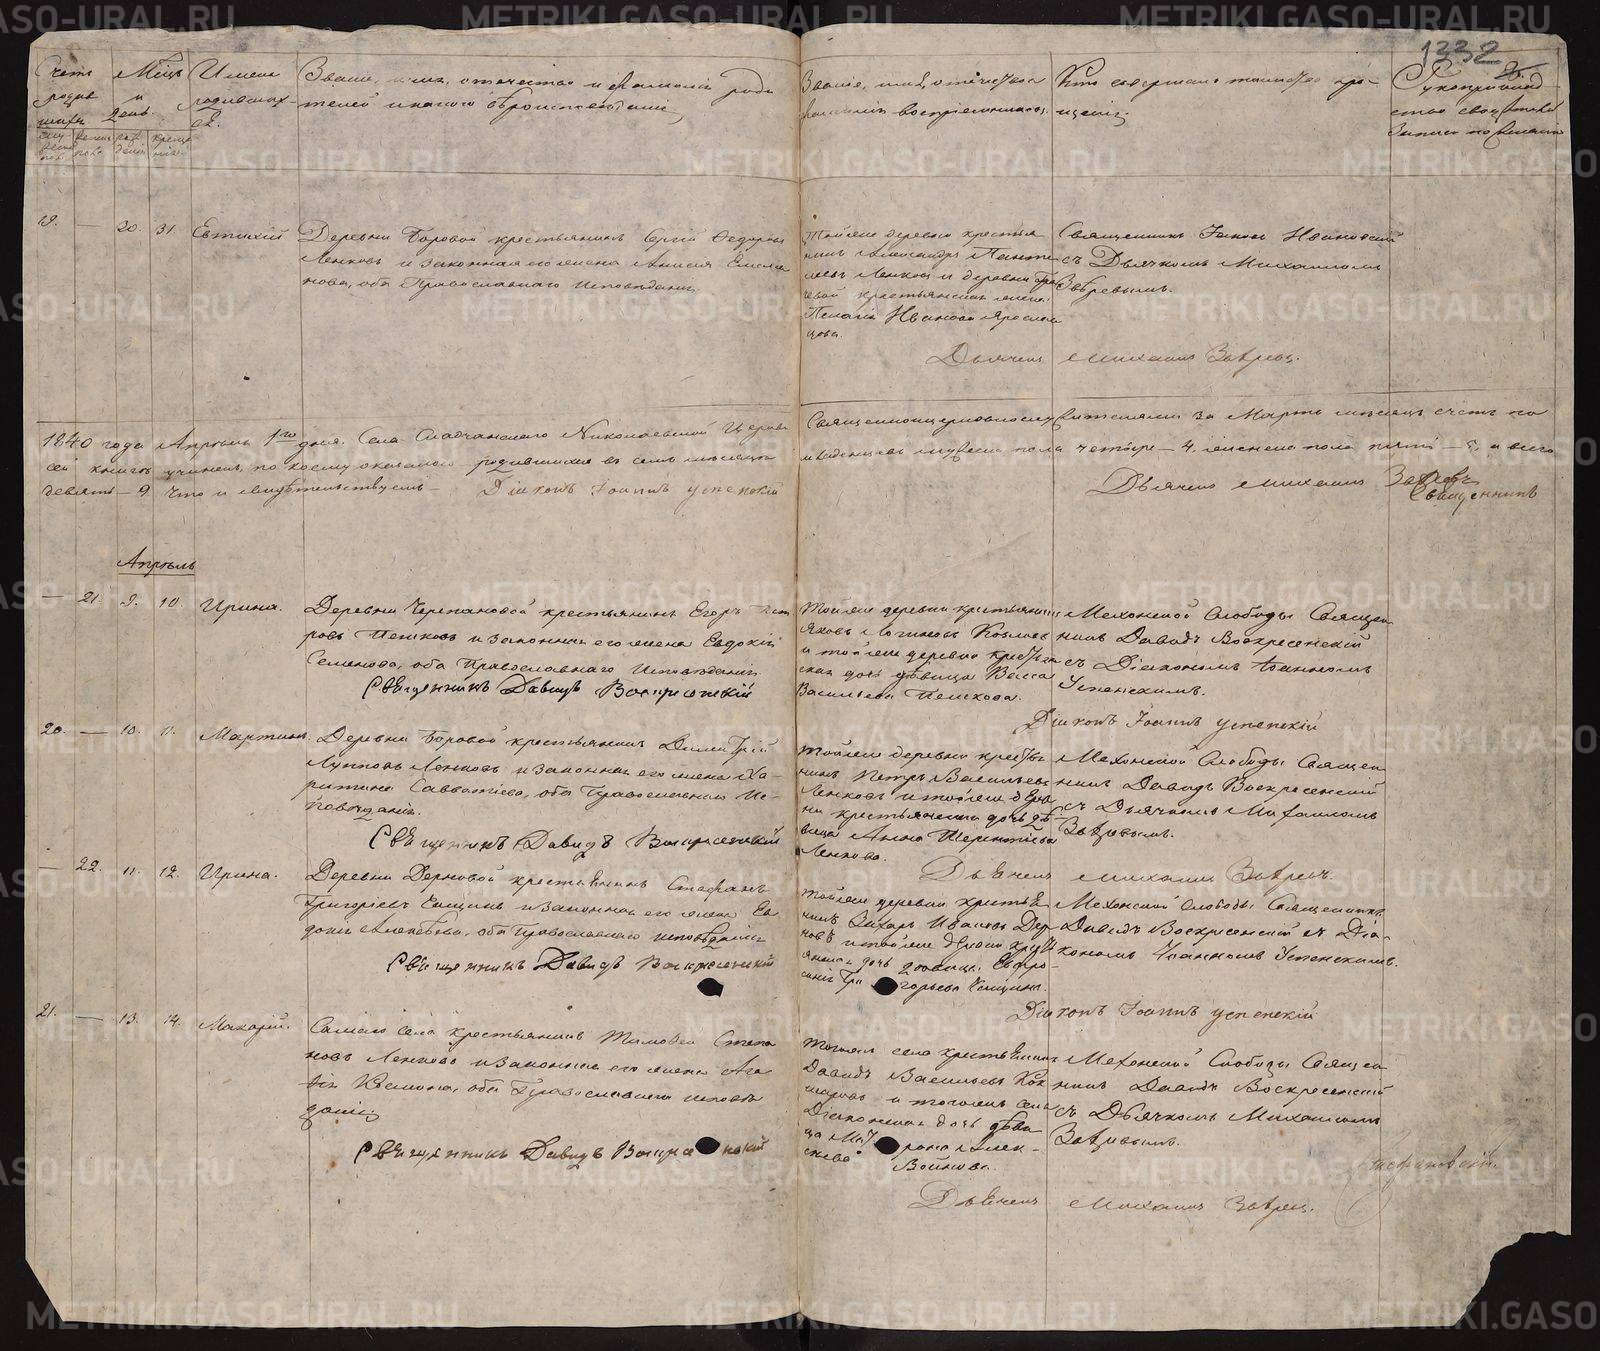 1332
Счетъ родив шихъ
Мѣцъ и день
Имена родивших-ся.
Званіе, имя, отечество и фамилія роди
телей и какого вѣроисповѣданія
Званіе, имя, отечество и
фамилія воспріемниковъ.
Кто совершалъ таинство кре-
щенія.
Рукоприклад
ство свидѣтелей
записи по желанію
19. — 20. 31. Евтихій
Деревни Боровой крестьянинъ Сергій Федоровъ
Ленковъ и законная его жена Анисія Емелья
нова, оба Православнаго Исповѣданія
Тойже деревни крестья
нинъ Александръ Панте
леевъ Ленковъ и деревни
крестьянская жена
Пелагія Иванова Ярослав
цова.
Священникъ Іаковъ Ивановскій
съ Дьячкомъ Михаиломъ
Звѣревымъ.
Дьячекъ Михаилъ Звѣревъ.
1840 года Апрѣля 1го дня. Села Николаевской Церкви
Священноцерковнослужителями за Мартъ мѣсяцъ счетъ по
сей книгѣ учиненъ, по коему оказалось родившихся въ семъ мѣсяцѣ
младенцевъ мужеска пола четыре — 4, женска пола пять — 5, а всего
девять — 9 Что и свидѣтельствуемъ — Діаконъ Іоаннъ Успенскій
Дьячекъ Михаилъ Звѣревъ
Священникъ
Апрѣль
— 21. 9. 10. Ирина.
Деревни Черепановой крестьянинъ Егоръ Пет
ровъ Пешковъ и законная его жена Евдокія
Семенова, оба Православнаго Исповѣданія
Священникъ Давидъ Воскресенскій
Тойже деревни крестьянинъ
Яковъ Логиновъ Козловъ
и тойже деревни крестьян
ская дочь дѣвица Васса
Васильева Пешкова.
Мехонской Слободы Священ
никъ Давидъ Воскресенскій
съ Діакономъ Іоанномъ
Успенскимъ.
Діаконъ Іоаннъ Успенскій
20. — 10. 11. Мартинъ.
Деревни Боровой крестьянинъ Димитрій
Лупповъ Ленковъ и законная его жена Ха-
ритина Савватіева, оба Православнаго Ис-
повѣданія.
Священникъ Давидъ Воскресенскій
Тойже деревни крестья
нинъ Петръ Васильевъ
Ленковъ и тойже дерев
ни крестьянская дочь дѣ
вица Анна Терентіева
Ленкова.
Мехонской Слободы Священ
никъ Давидъ Воскресенскій
съ Дьячкомъ Михаиломъ
Звѣревымъ.
Дьячекъ Михаилъ Звѣревъ.
— 22. 11. 12. Ирина.
Деревни Дерновой крестьянинъ Стефанъ
Григоріевъ и законная его жена Ев
докія Алексѣева, оба Православнаго исповѣданія
Священникъ Давидъ Воскресенскій
Тойже деревни крестья
нинъ Захаръ Ивановъ Дер
новъ и тойже деревни кресть
янская дочь дѣвица Евфро-
синія Григорьева
Мехонской Слободы Священникъ
Давидъ Воскресенскій съ Діа-
кономъ Іоанномъ Успенскимъ.
Діаконъ Іоаннъ Успенскій
21. — 13. 14. Макарій.
Самаго села крестьянинъ Тимофей Степа
новъ Ленковъ и законная его жена Ага
фія оба Православнаго исповѣ
данія
Священникъ Давидъ Воскресенскій
Тогоже села крестьянинъ
Давидъ Васильевъ Кок
шаровъ и тогоже села
Діаконская дочь дѣви
ца Матрона Алек-
сѣева Войнова.
Мехонской Слободы Священ
никъ Давидъ Воскресенскій
съ Дьячкомъ Михаиломъ
Звѣревымъ.
Стефановскій.
Дьячекъ Михаилъ Звѣревъ.
METRIKI.GASO-URAL.RU